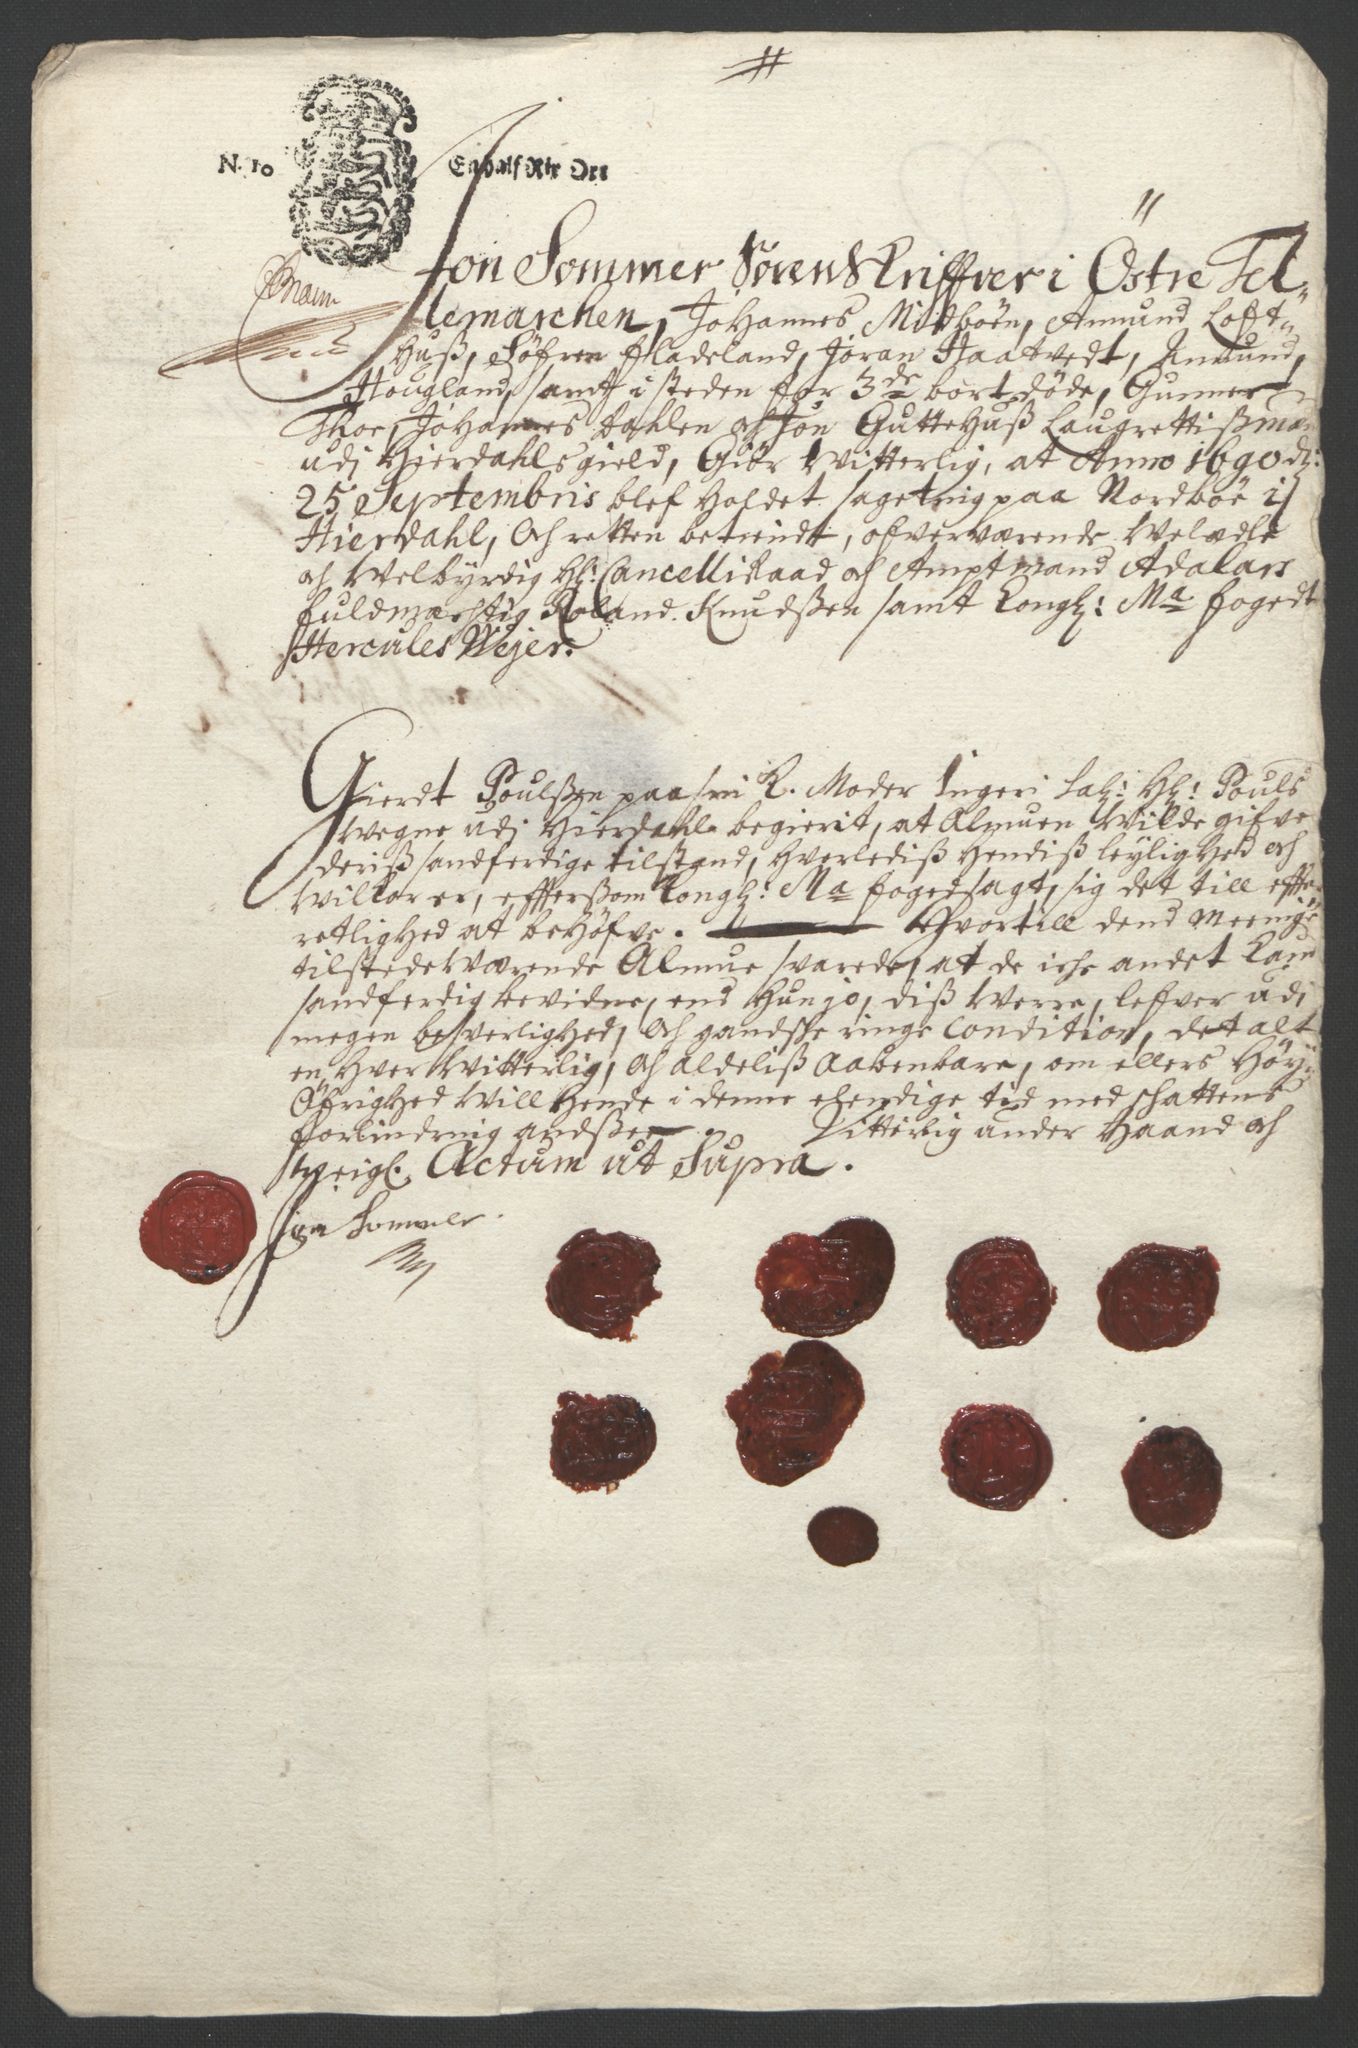 N. 10 En half Rix Ort
Jon Sommer Sørenskriffver i Östre Tel-
lemarchen, Johannes Midböen, Amund Loft-
Huß, Söfren fladeland, Joran Haatvedt, Amund
Hougland, samt i steden for 3de bortdöde, Gunner
Thoe, Johannes dahlen och Jon GutteHuß Laugrettißmænd
udj Hierdahls gield, Giör Witterlig, at Anno 1690 d:
25 Septembris blef holdet sageting paa Nordböe i
Hierdahl, och retten betiendt, ofverværende Welædle
och Welbyrdig Hr: Cancelliraad och Amptmand Adalars
fuldmæchtig Roland Knudßen samt Kongl: Ma fogedt
Hercules Wejer.
Gierdt Poulßen paa sin K. Moder Ingeri Sal: Hr: Pouls
wegne udj Hierdahl begierit, at Almuen wilde gifve
deriß sandferdige tilstand, hverlediß hendiß leylighed och
willkor er, effterßom Kongl: Ma foged sagt, sig det till effter
retlighed at behöfve. Hvortill dend meenige
tilstedeværende Almue svarede, at de iche andet kand
sandferdig bevidne, end hun jo, diß werre, lefver udi
megen besverlighed, och gandske ringe condition, det alt
en hver witterlig, och aldeliß aabenbare, om ellers höye
Öfrighed will hende i denne elendige tid med schattens
forlindring andßee. Vitterlig under haand och
signet. Actum ut Supra.
Jon Sommer